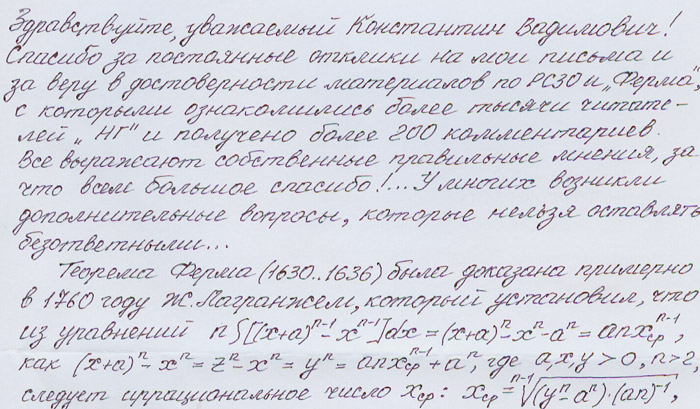 Здравствуйте, уважаемый Константин Вадимович!
Спасибо за постоянные отклики на мои письма и
за веру в достоверности материалов по РСЗО и „Ферма",
с которыми ознакомились более тысячи читате-
лей „НГ" и получено более 200 комментариев.
Все выражают собственные правильные мнения, за
что всем большое спасибо!... У многих возникли
дополнительные вопросы, которые нельзя оставлять
безответными...
Теорема Ферма (1630..1636) была доказана примерно
в 1760 году Ж. Лагранжем, который установил, что
из уравнений n∫[(x+a)ⁿ⁻¹-xⁿ⁻¹]dx = (x+a)ⁿ-xⁿ-aⁿ = anxсрⁿ⁻¹,
как (x+a)ⁿ-xⁿ = zⁿ-xⁿ = yⁿ = anxсрⁿ⁻¹+aⁿ, где a,x,y > 0, n>2,
следует иррациональное число xср: xср = ⁿ⁻¹√(yⁿ-aⁿ)·(an)⁻¹,